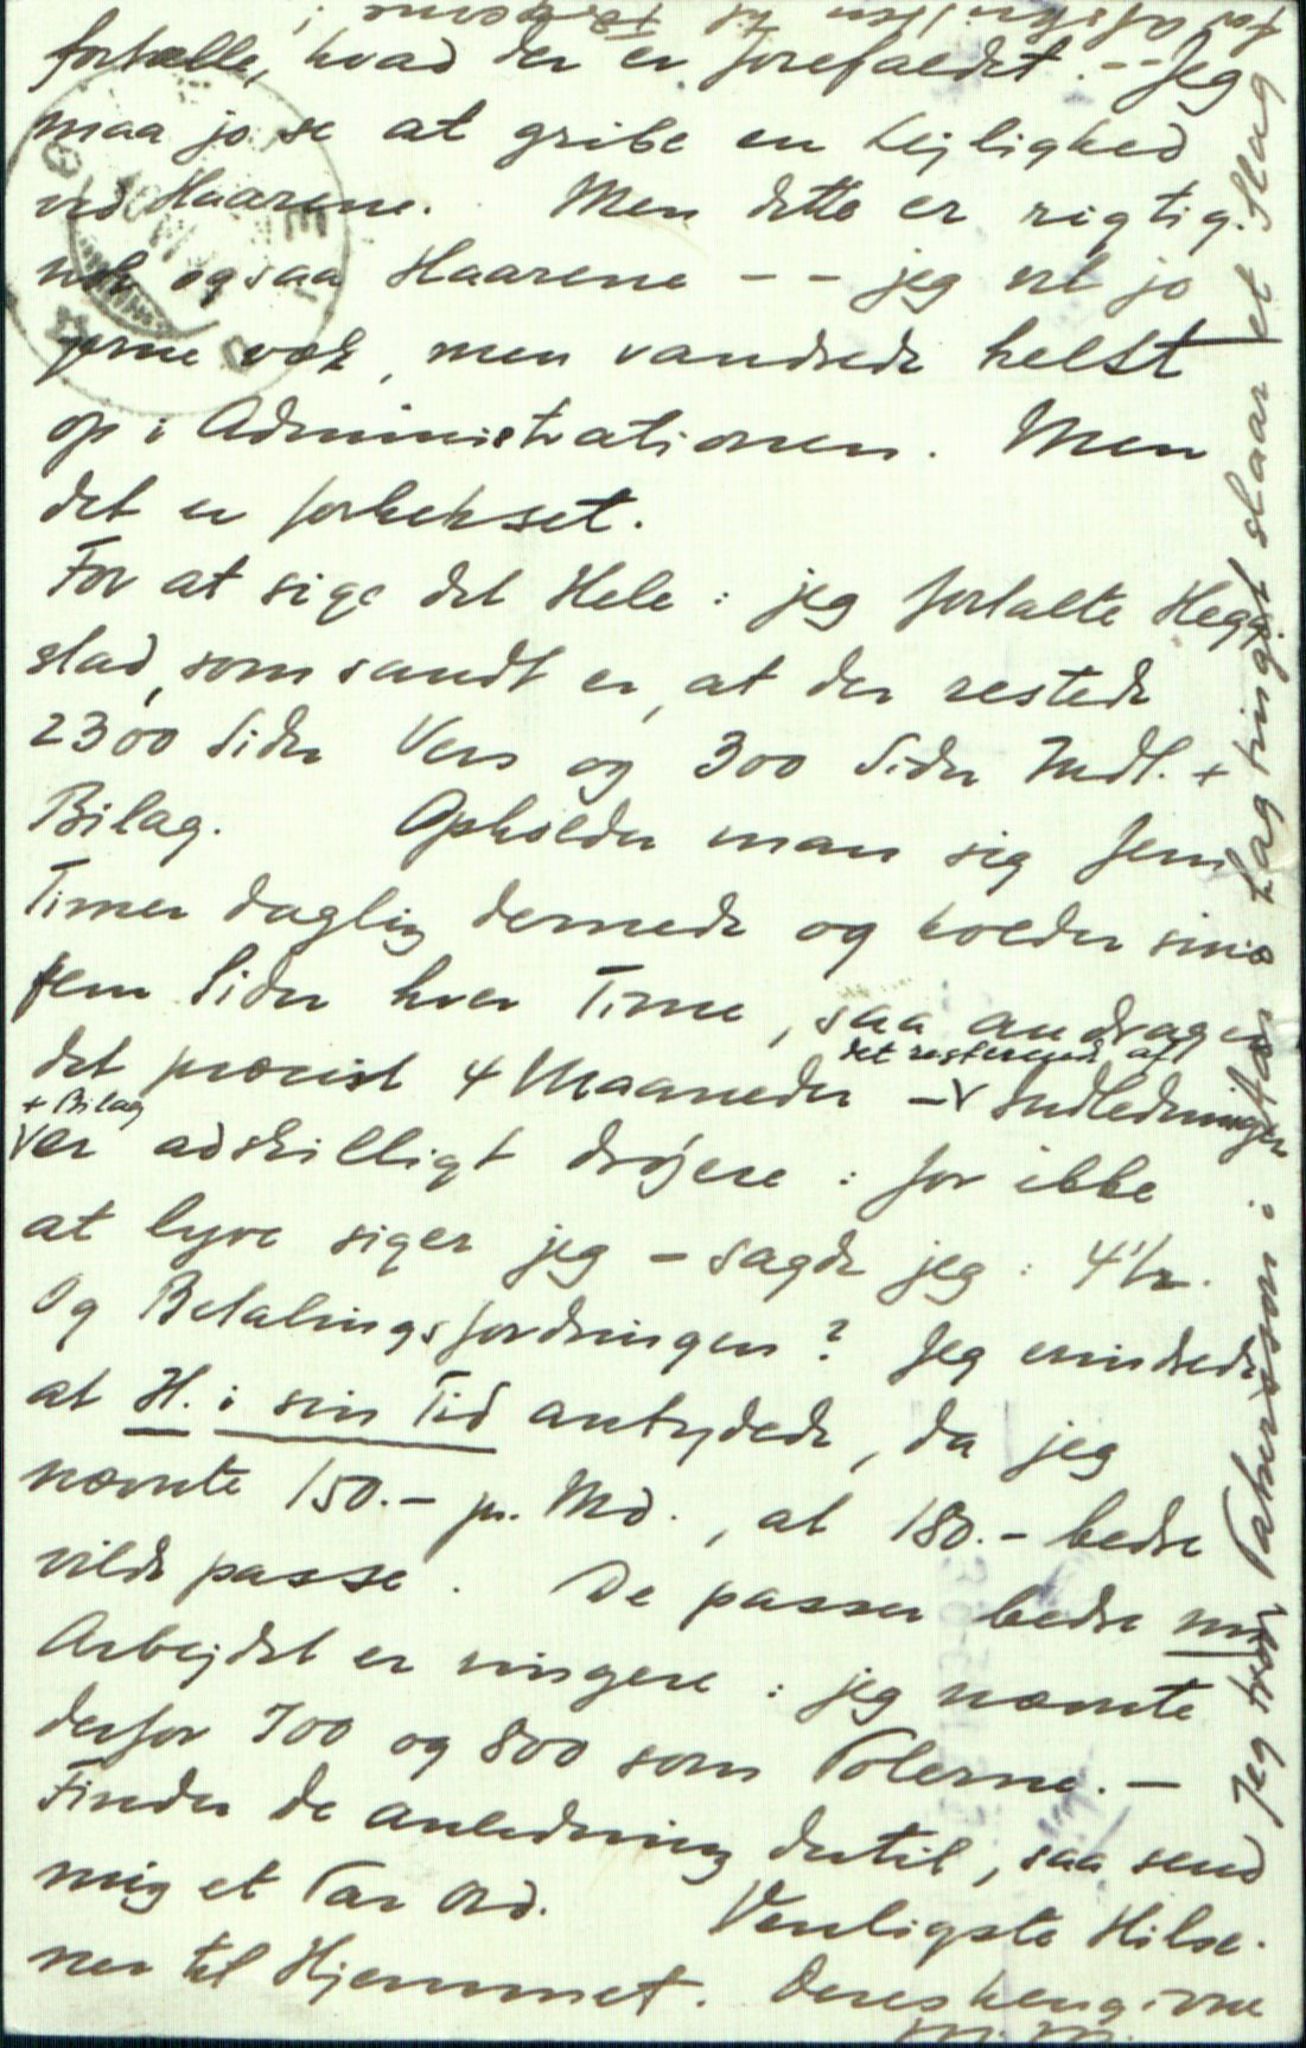 fortælle, hvad der er forefaldet. -- Jeg
maa jo se at gribe en Lejlighed
ved Haarene. Men dette er rigtig-
nok ogsaa Haarene -- jeg vil jo
gerne væk, men vandrede helst
op i Administrationen. Men
det er forhekset.
For at sige det Hele: jeg fortalte Hegg-
stad, som sandt er, at der restede
2300 Sider Vers og 300 Sider Indl. +
Bilag. Opholder man sig fem
Timer daglig dernede og holder sine
fem Sider hver Time, saa andrager
det præcist 4 Maaneder - det resterende af Indledningen
+ Bilag er adskilligt drøjere: for ikke
at lyve siger jeg - sagde jeg: 4½.
Og Betalingsfordringen? Jeg erindrede
at H. i sin Tid antydede, da jeg
nævnte 150.- pr. Md., at 180.- bedre
vilde passe. De passer bedre nu
Arbejdet er ringere: jeg nævnte
derfor 700 og 800 som Polerne. -
Finder De anledning dertil, saa send
mig et Par Ord. Venligste Hilse-
ner til Hjemmet. Deres hengivne
M.M.
Jeg tror i Aften Lagtinget slaar et Slag